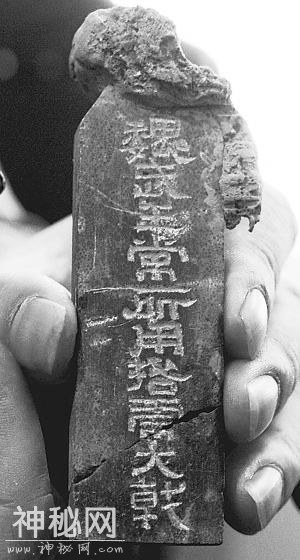 魏武王常所用挌虎大戟
神秘网
www.神秘网.com